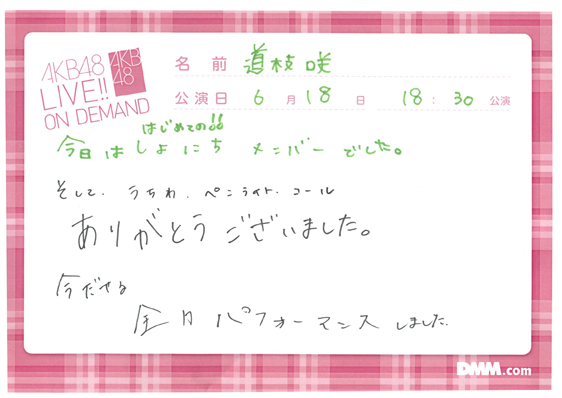 AKB48
LIVE!!
ON DEMAND
AKB
48
名前 道枝咲
公演日 6月18日 18:30 公演
はじめての!!
今日は しょにち メンバー でした。
そして、うちわ、ペンライト、コール
ありがとうございました。
今だせる
全力パフォーマンスしました。
DMM.com